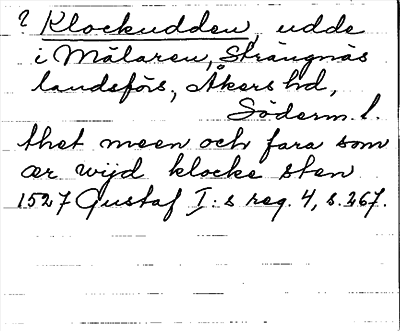 ? Klockudden, udde
i Mälaren, Strängnäs
landsförs., Åkers hd,
Söderm. l.
thet meen och fara som
ær wijd klocke sten
1527 Gustaf I:s reg. 4, s. 267.